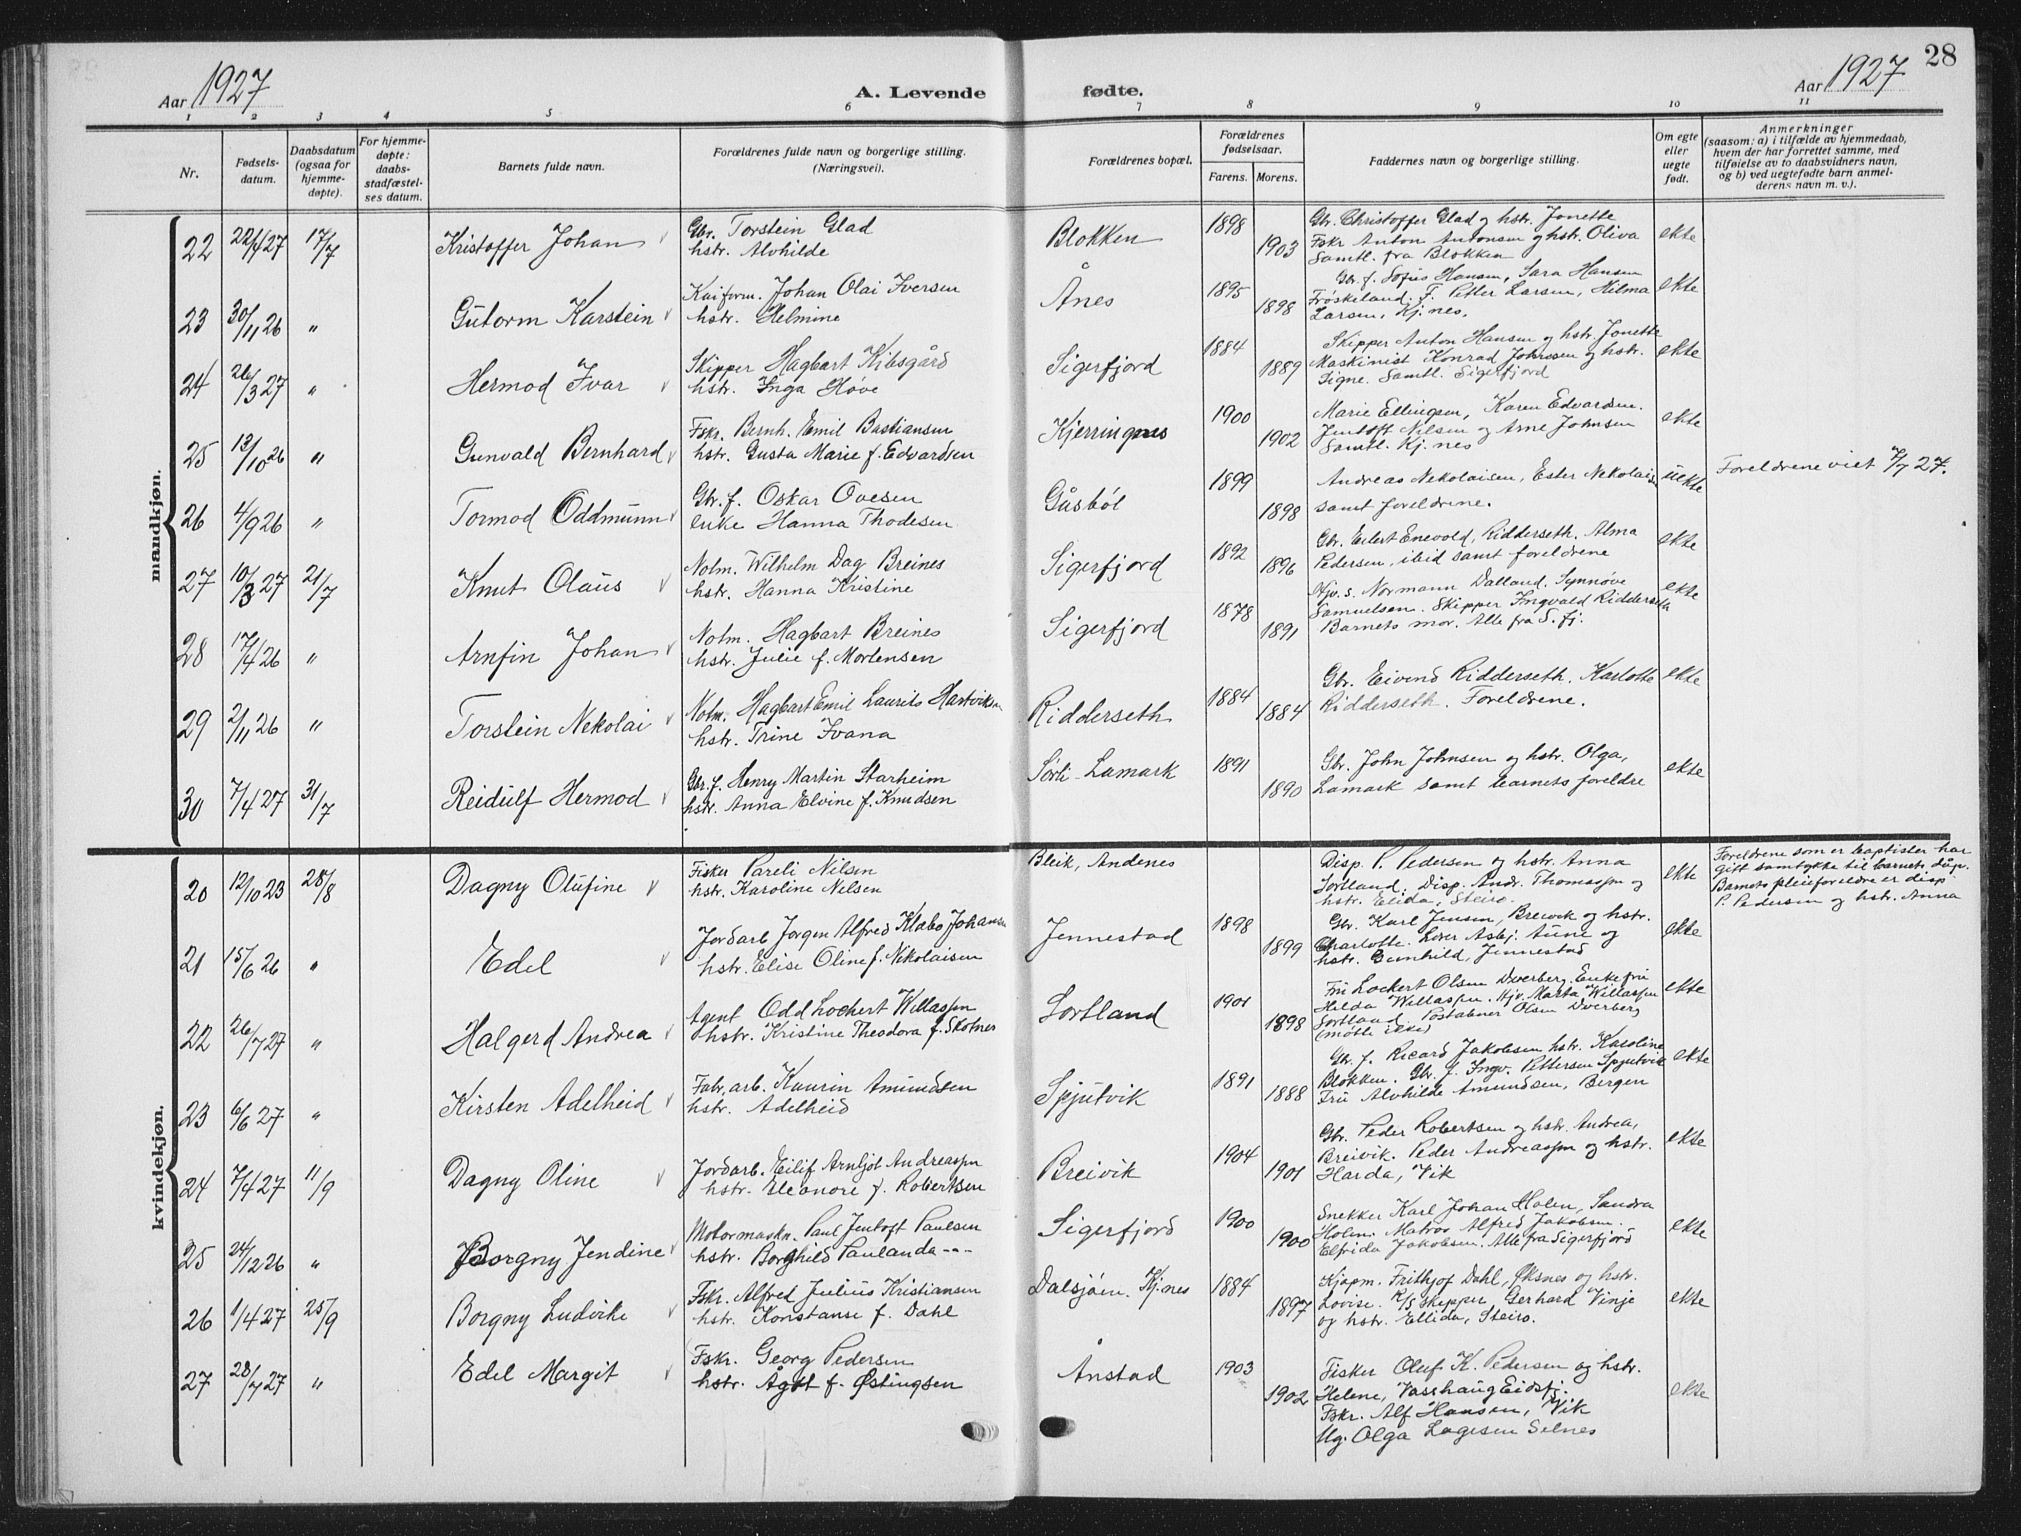 28
Aar 1927
A. Levende fødte.
Aar 1927
1 2 3 4 5 6 7 8 9 10 11
Nr.
Fødsels-
datum.
Daabsdatum
(ogsaa for
hjemme-
døpte).
For hjemme-
døpte:
daabs-
stadfæstel-
ses datum.
Barnets fulde navn.
Forældrenes fulde navn og borgerlige stilling.
(Næringsvei).
Forældrenes bopæl.
Forældrenes
fødselsaar.
Farens. Morens.
Faddernes navn og borgerlige stilling.
Om egte
eller
uegte
født.
Anmerkninger
(saasom: a) i tilfælde av hjemmedaab,
hvem der har forrettet samme, med
tilføielse av to daabsvidners navn,
og b) ved uegtefødte barn anmel-
derens navn m. v.).
mandkjøn.
22 22/4 27 17/7 Kristoffer Johan
Gbr. Torstein Glad
hstr. Alvhilde
Blokken 1898 1903
Gbr. Christoffer Glad og hstr. Jonette
Fskr Anton Antonsen og hstr. Oliva
Samtl. fra Blokken
ekte
23 30/11 26 " Gutorm Karstein
Kaiform. Johan Olai Iversen
hstr. Helmine
Ånes 1895 1898
Gbr. f. Sofus Hansen, Sara Hansen
Frøskeland. F. Petter Larsen, Hilma
Larsen, Kj.nes.
ekte
24 26/3 27 " Hermod Ivar
Skipper Hagbart Kibsgård
hstr. Inga Høve
Sigerfjord 1884 1889
Skipper Anton Hansen og hstr. Jonette
Maskinist Konrad Johnsen og hstr.
Signe. Samtl. Sigerfjord
ekte
25 13/10 26 " Gunvald Bernhard
Fskr. Bernh. Emil Bastiansen
hstr. Gusta Marie f. Edvardsen
Kjerringnes 1900 1902
Marie Ellingsen, Karen Edvardsen.
Jentoft Nilsen og Arne Johnsen
Samtl. Kj.nes
ekte
26 4/9 26 " Tormod Oddmunn
Gbr. f. Oskar Ovesen
enke Hanna Thodesen
Gåsbøl 1899 1898
Andreas Nekolaisen, Ester Nekolaisen
samt foreldrene.
uekte
Foreldrene viet 7/7 27.
27 10/3 27 21/7 Knut Olaus
Notm. Wilhelm Dag Breines
hstr. Hanna Kristine
Sigerfjord 1892 1896
Gbr. Eilert Enevold, Ridderseth. Alma
Pedersen, ibid samt foreldrene
ekte
28 17/4 26 " Arnfin Johan
Notm. Hagbart Breines
hstr. Julie f. Mortensen
Sigerfjord 1878 1891
Hjv. s. Normann Dalland, Synnøve
Samuelsen. Skipper Ingvald Ridderseth
Barnets mor. Alle fra S.fj.
ekte
29 2/11 26 " Torstein Nekolai
Notm. Hagbart Emil Laurits Hartviksen
hstr. Trine Ivana
Ridderseth 1884 1884
Gbr. Eivind Ridderseth. Karlotte
Ridderseth. Foreldrene.
ekte
30 7/4 27 31/7 Reidulf Hermod
Gbr. f. Henry Martin Starheim
hstr. Anna Elvine f. Knudsen
Sørli-Lamark 1891 1890
Gbr. John Johnsen og hstr. Olga,
Lamark samt barnets foreldre
ekte
kvindekjøn.
20 12/10 23 28/8 Dagny Olufine
Fisker Pareli Nilsen
hstr. Karoline Nilsen
Bleik, Andenes
Disp. P. Pedersen og hstr. Anna
Sortland. Disp. Andr. Thomassen og
hstr. Elida, Steiro.
ekte
Foreldrene som er baptister har
gitt samtykke til barnets dåp.
Barnets pleieforeldre er disp.
P. Pedersen og hstr. Anna
21 15/6 26 " Edel
Jordarb Jørgen Alfred Klabo Johansen
hstr. Elise Oline f. Nikolaisen
Jennestad 1898 1899
Gbr. Karl Jensen, Breivik og hstr.
Charlotte. Lærer Asbj. Aune og
hstr. Gunhild, Jennestad
ekte
22 26/7 27 " Halgerd Andrea
Agent Odd Lockert Willassen
hstr. Kristine Theodora f. Skotnes
Sortland 1901 1898
Fru Lockert Olsen Dverberg, Enkefru
Hilda Willassen. Hjv. Marta Willassen
Sortland. Postabner Olsen Dverberg
(møtte ikke)
ekte
23 6/6 27 " Kirsten Adelheid
Fabr.arb. Kaurin Amundsen
hstr. Adelheid
Spjutvik 1891 1888
Gbr. f. Ricard Jakobsen hstr. Karoline
Blokken. Gbr. f. Ingv. Pettersen Spjutvik
Fru Alvhilde Amundsen, Bergen
ekte
24 7/4 27 11/9 Dagny Oline
Jordarb. Eilif Arnljot Andreassen
hstr. Eleonore f. Robertsen
Breivik 1904 1901
Gbr. Peder Robertsen og hstr. Andrea,
Breivik. Peder Andreassen og hstr.
Harda, Vik
ekte
25 24/12 26 " Borgny Jendine
Motormaskn. Paul Jentoft Paulsen
hstr. Borghild Paulanda ---
Sigerfjord 1900 1900
Snekker Karl Johan Holen, Sandra
Holm. Matros Alfred Jakobsen.
Elfrida Jakobsen. Alle fra Sigerfjord
ekte
26 1/4 27 25/9 Borgny Ludvikke
Fskr. Alfred Julius Kristiansen
hstr. Konstanse f. Dahl
Dalsjøen. Kj.nes 1884 1897
Kjøpm. Frithjof Dahl, Øksnes og hstr.
Lovise. R/S skipper Gerhard Vinje
og hstr. Ellida, Steiro.
ekte
27 28/7 27 " Edel Margit
Fskr. Georg Pedersen
hstr. Ågot f. Østingsen
Ånstad 1903 1902
Fisker Oluf K. Pedersen og hstr.
Helene, Vasshaug Eidsfj.
Fskr. Alf Hansen, Vik
Ug. Olga Lagesen Selnes
ekte